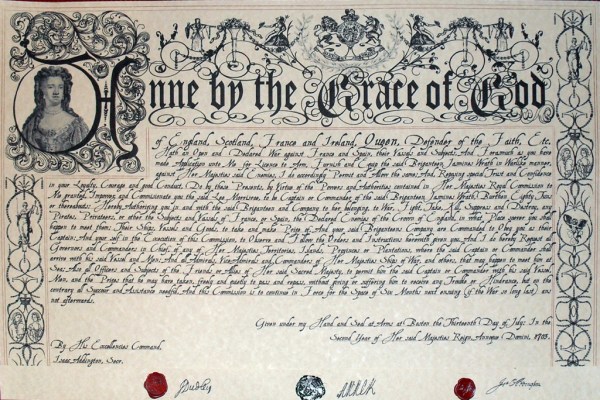 Anne by the Grace of God
of England, Scotland, France and Ireland, Queen, Defender of the Faith, Etc.
Hath an Open and Declared War against France and Spain, their Vassals and Subjects. And Forasmuch as you have
made Application unto Me for Licence to Arm, Furnish and Equip the said Brigenteen, Jasmines Wrath in Warlike manner,
against Her Majesties said Enemies, I do accordingly Permit and Allow the same; And, Reposing special Trust and Confidence
in your Loyalty, Courage and good Conduct, Do by these Presents, by Virtue of the Powers and Authorities contained in Her Majesties Royal Commission to
Me granted, Impower and Commissionate you the said Lee, Morrisose, to be Captain or Commander of the said Brigenteen, Jasmines Wrath, Burthen Eighty Tuns
or thereabouts: Hereby Authorizing you in and with the said Brigenteen and Company to her belonging, to War, Fight, Take, Kill, Suppress and Destroy, any
Pirates, Privateers, or other the Subjects and Vassals of France, or Spain, the Declared Enemies of the Crown of England, in what Place soever you shall
happen to meet them; Their Ships, Vessels and Goods, to take and make Prize of. And your said Brigenteens Company are Commanded to Obey you as their
Captain: And your self in the Execution of this Commission, to Observe and Follow the Orders and Instructions herewith given you. And I do hereby Request all
Governours and Commanders in Chief, of any of Her Majesties Territories, Islands, Provinces or Plantations, where the said Captain or Commander shall
arrive with his said Vessel and Men: And all Admirals, Vice-Admirals and Commanders of Her Majesties Ships of War, and others, that may happen to meet him at
Sea; Also all Officers and Subjects of the Friends or Allies of Her said Sacred Majesty, to permit him the said Captain or Commander with his said Vessel,
Men, and the Prizes that he may have taken, freely and quietly to pass and repass, without giving or suffering him to receive any Trouble or Hindrance, but on the
contrary all Succour and Assistance needful. And this Commission is to continue in Force for the Space of Six Months next ensuing (if the War so long last) and
not afterwards.
Given under my Hand and Seal at Arms at Boston the Thirteenth Day of July: In the
Second Year of Her said Majesties Reign, Annoque Domini, 1703.
By His Excellencies Command,
Isaac Addington, Secr.
J Dudley